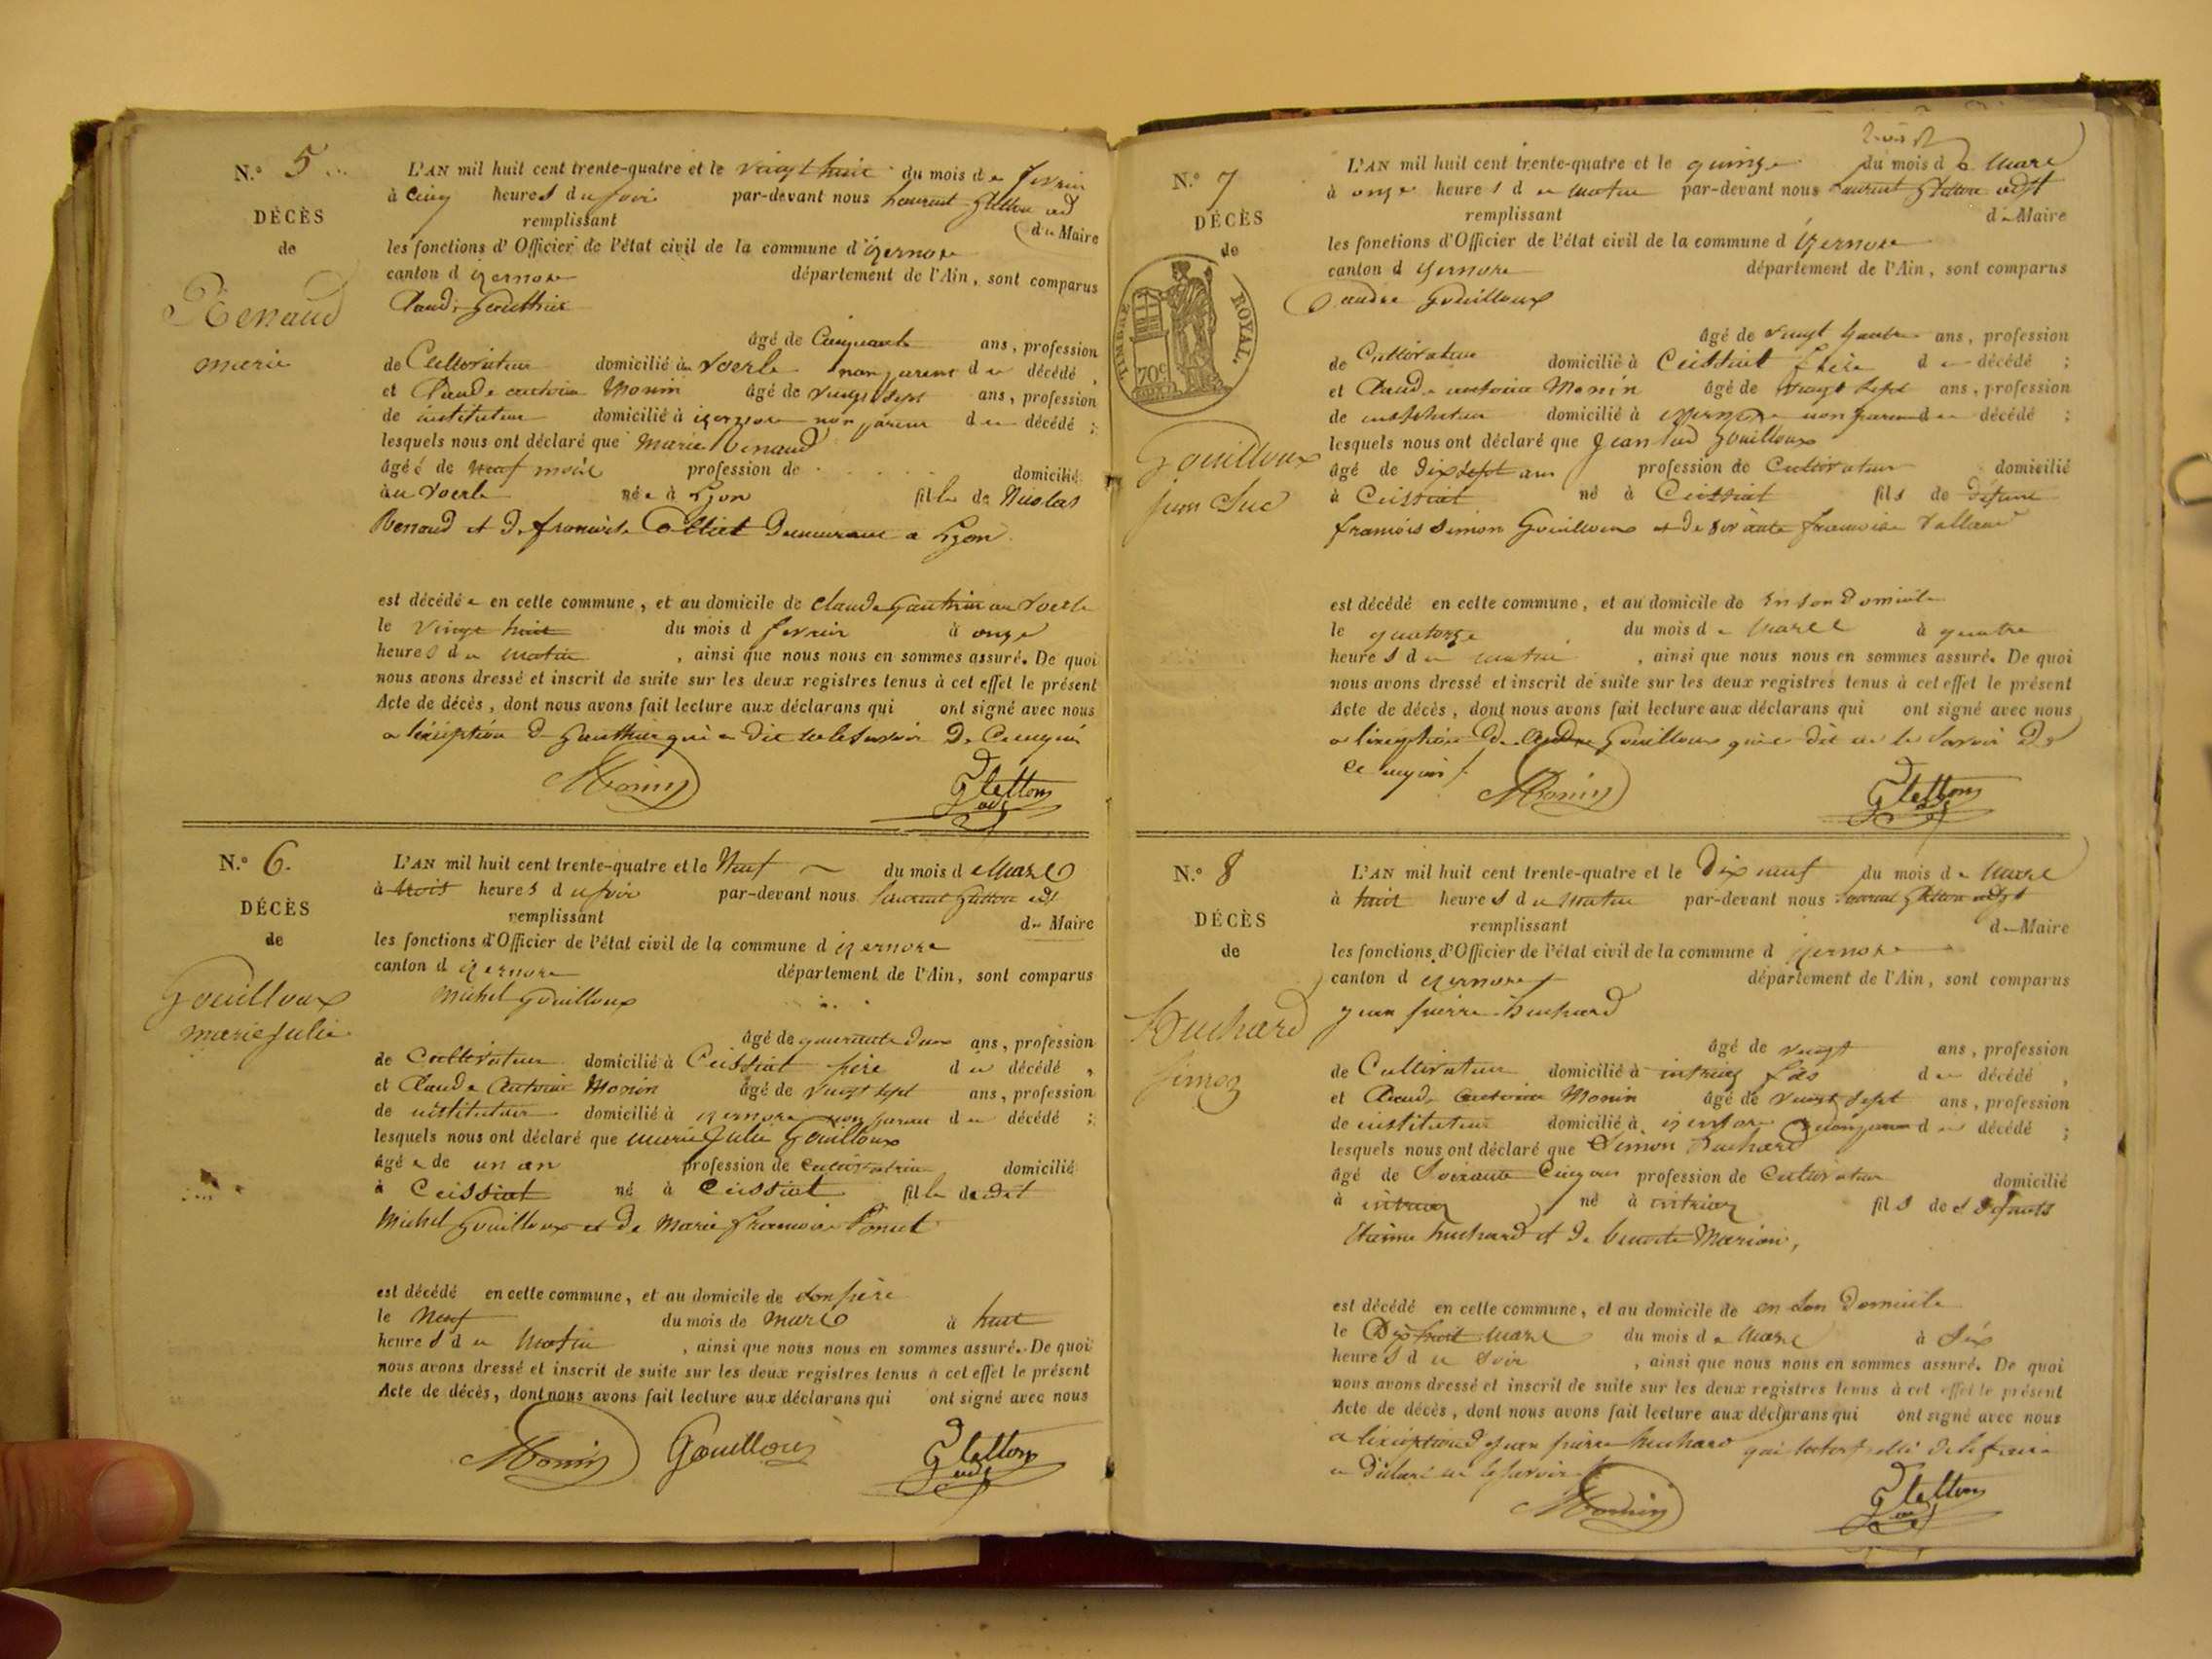 N.° 5
DÉCÈS
de
Renaud
marie
L'AN mil huit cent trente-quatre et le vingt huit du mois de fevrier
à cinq heures du soir par-devant nous Laurent Gletton adj
remplissant du Maire
les fonctions d'Officier de l'état civil de la commune d'izernore
canton d izernore département de l'Ain, sont comparus
Claude Gauthier
âgé de Cinquante ans, profession
de Cultivateur domicilié au Voerle non parent du décédé,
et Claude antoine Monin âgé de vingt sept ans, profession
de instituteur domicilié à izernore non parent du décédé;
lesquels nous ont déclaré que marie Renaud
âgéé de neuf mois profession de domicilié
au Voerle née à Lyon fille de Nicolas
Renaud et de francoise demeurant a Lyon
est décédée en cette commune, et au domicile de claude Gauthier au Voerle
le vingt huit du mois d fevrier à onze
heures du matin, ainsi que nous nous en sommes assuré. De quoi
nous avons dressé et inscrit de suite sur les deux registres tenus à cet effet le présent
Acte de décès, dont nous avons fait lecture aux déclarans qui ont signé avec nous
a lexception d Gauthier qui a dit ne le savoir De Ce enquis
Monin Gletton adj
N.° 6.
DÉCÈS
de
Gouilloux
marie julie
L'AN mil huit cent trente-quatre et le Neuf du mois de Mars
à trois heures du soir par-devant nous Laurent Gletton adj
remplissant du Maire
les fonctions d'Officier de l'état civil de la commune d izernore
canton d izernore département de l'Ain, sont comparus
Michel Gouilloux
âgé de quarante deux ans, profession
de Cultivateur domicilié à Ceissiat père du décédé,
et Claude Antoine Monin âgé de vingt sept ans, profession
de instituteur domicilié à izernore non parent du décédé;
lesquels nous ont déclaré que marie Julie Gouilloux
âgée de un an profession de cultivatrice domicilié
à Ceissiat né à Ceissiat fille de dit
Michel Gouilloux et de Marie francoise Poncet
est décédé en cette commune, et au domicile de son père
le Neuf du mois de Mars à huit
heures du Matin, ainsi que nous nous en sommes assuré. De quoi
nous avons dressé et inscrit de suite sur les deux registres tenus à cet effet le présent
Acte de décès, dont nous avons fait lecture aux déclarans qui ont signé avec nous
Monin Gouilloux Gletton adj
N.° 7
DÉCÈS
de
TIMBRE ROYAL
70c
Gouilloux
jean Luc
L'AN mil huit cent trente-quatre et le quinze du mois de Mars
à onze heures du matin par-devant nous Laurent Gletton adjt
remplissant du Maire
les fonctions d'Officier de l'état civil de la commune d izernore
canton d izernore département de l'Ain, sont comparus
andre Gouilloux
âgé de vingt quatre ans, profession
de Cultivateur domicilié à Ceissiat frère du décédé;
et Claude antoine Monin âgé de vingt sept ans, profession
de instituteur domicilié à izernore non parent du décédé;
lesquels nous ont déclaré que jean luc Gouilloux
âgé de dix sept ans profession de Cultivateur domicilié
à Ceissiat né à Ceissiat fils de defunt
francois Simon Gouilloux et de vivante francoise
est décédé en cette commune, et au domicile de en son domicile
le quatorze du mois de Mars à quatre
heures du matin, ainsi que nous nous en sommes assuré. De quoi
nous avons dressé et inscrit de suite sur les deux registres tenus à cet effet le présent
Acte de décès, dont nous avons fait lecture aux déclarans qui ont signé avec nous
a lexception de Andre Gouilloux qui a dit ne le savoir De
ce enquis
Monin Gletton adj
N.° 8
DÉCÈS
de
Huchard
Simon
L'AN mil huit cent trente-quatre et le Dix neuf du mois de Mars
à huit heures du matin par-devant nous Laurent Gletton adjt
remplissant du Maire
les fonctions d'Officier de l'état civil de la commune d izernore
canton d izernore département de l'Ain, sont comparus
jean pierre huchard
âgé de vingt ans, profession
de Cultivateur domicilié à intriaz fils du décédé,
et Claude Antoine Monin âgé de vingt sept ans, profession
de instituteur domicilié à izernore non parent du décédé;
lesquels nous ont déclaré que Simon huchard
âgé de Soixante Cinq ans profession de Cultivateur domicilié
à intriaz né à intriaz fils de s defunts
Etienne huchard et de benoite Marion,
est décédé en cette commune, et au domicile de en son domicile
le Dix huit Mars du mois de Mars à Six
heures du Soir, ainsi que nous nous en sommes assuré. De quoi
nous avons dressé et inscrit de suite sur les deux registres tenus à cet effet le présent
Acte de décès, dont nous avons fait lecture aux déclarans qui ont signé avec nous
a lexception d jean pierre huchard qui de le faire
a déclaré ne le savoir
Monin Gletton adj